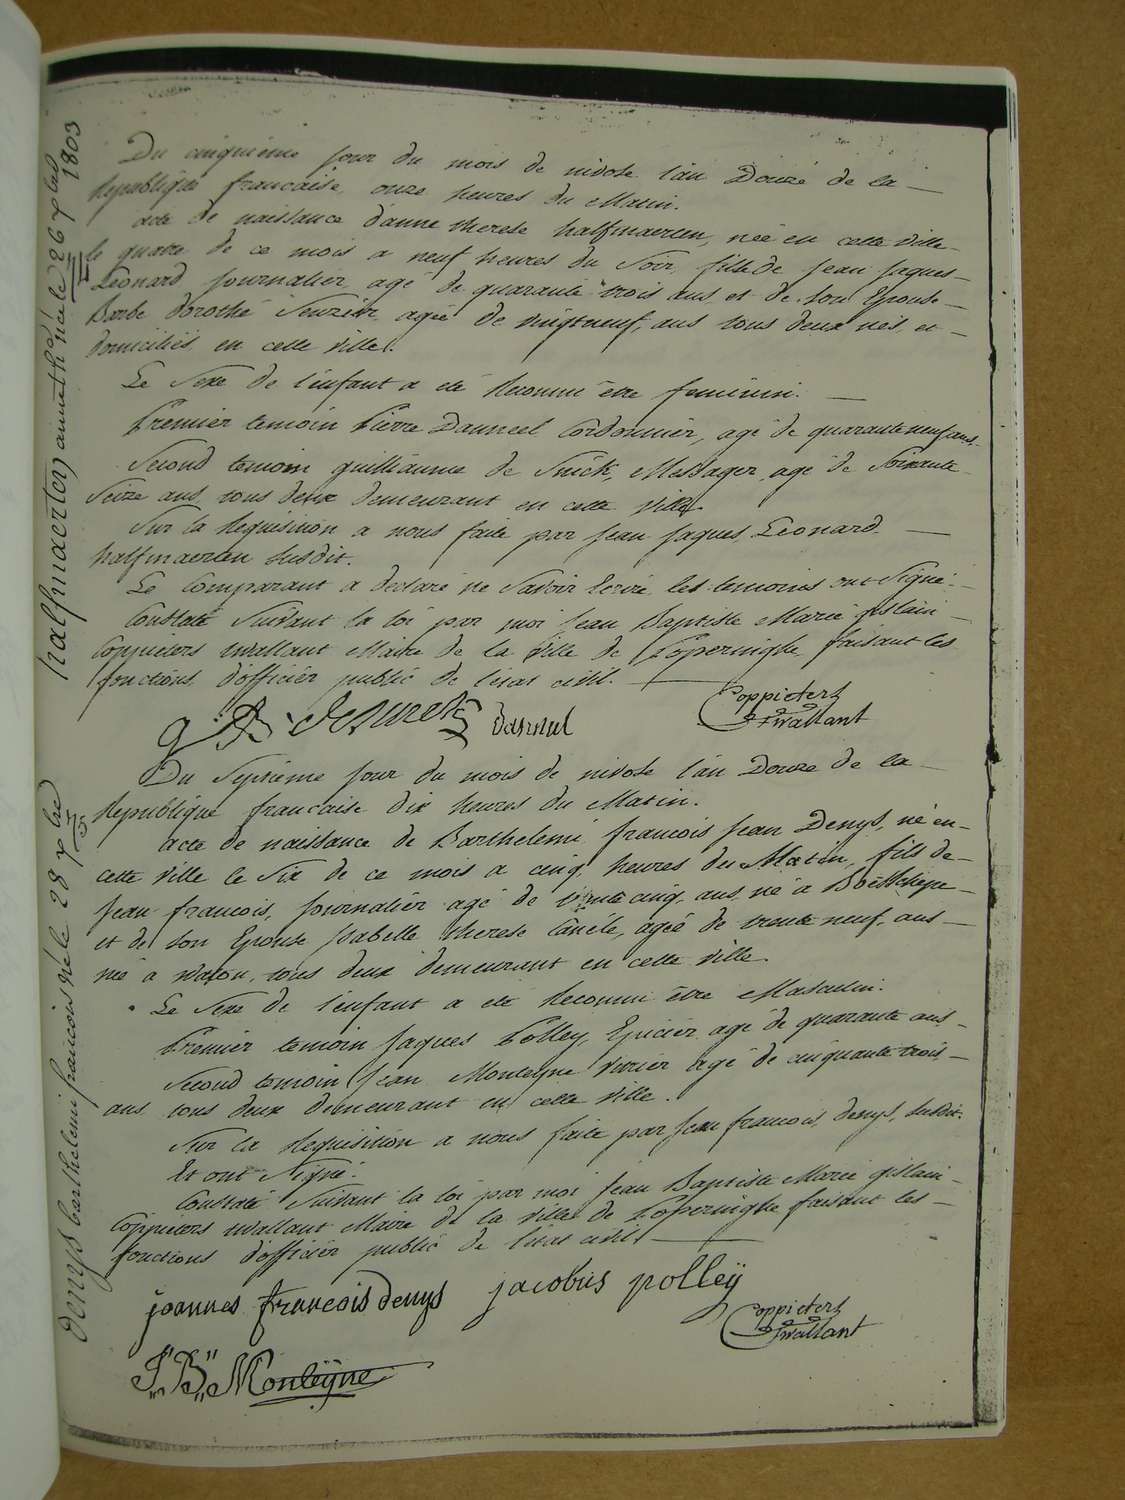 Du cinquième jour du mois de nivose l'an Douze de la
Republique française onze heures du Matin.
acte de naissance d'anne therese halfmaerten, née en cette ville
le quatre de ce mois a neuf heures du Soir, fille de jean jaques
Léonard journalier agé de quarante trois ans et de son Epouse
Barbe dorothé agée de vingtneuf ans tous deux nés et
domiciliés en cette ville.
Le Sexe de l'enfant a eté Reconnu être feminin.
Premier temoin Pierre Dauneel Cordonnier, agé de quarante neuf ans
Second temoin guilliaume de Messager agé de Soixante
Seize ans tous deux demeurant en cette ville
Sur la Requisition a nous faite par jean jaques Léonard
halfmaerten Susdit.
Le Comparant a declaré ne Savoir Ecrire les temoins ont Signé.
Constaté Suivant la loi par moi jean Baptiste Marie gislain
Coppieters wallant Maire de la Ville de Poperinghe faisant les
fonctions d'officier public de l'etat civil.
Coppieters
wallant
Du Septième jour du mois de nivose l'an Douze de la
Republique francaise dix heures du Matin.
acte de naissance de Barthelemi francois jean Denys, né en
cette ville le Six de ce mois a cinq heures du Matin, fils de
jean francois, journalier agé de trente cinq ans né a Boëschepe
et de son Epouse isabelle therese agée de trente neuf ans
née à watou, tous deux demeurant en cette ville.
Le Sexe de l'enfant a eté Reconnu être Masculin.
Premier temoin jaques Polley, Epicier agé de quarante ans
Second temoin jean Monteyne agé de cinquante trois
ans tous deux demeurant en cette ville.
Sur la Requisition a nous faite par jean francois denys, Susdit.
Et ont Signé.
Constaté Suivant la loi par moi jean Baptiste Marie gislain
Coppieters wallant Maire de la Ville de Poperinghe faisant les
fonctions d'officier public de l'etat civil
joannes francois denys jacobus polleÿ
Coppieters
wallant
J" B" Monteÿne
halfmaerten anne th née le 26 xbre
1803
denys barthelemi francois né le 28 xbre